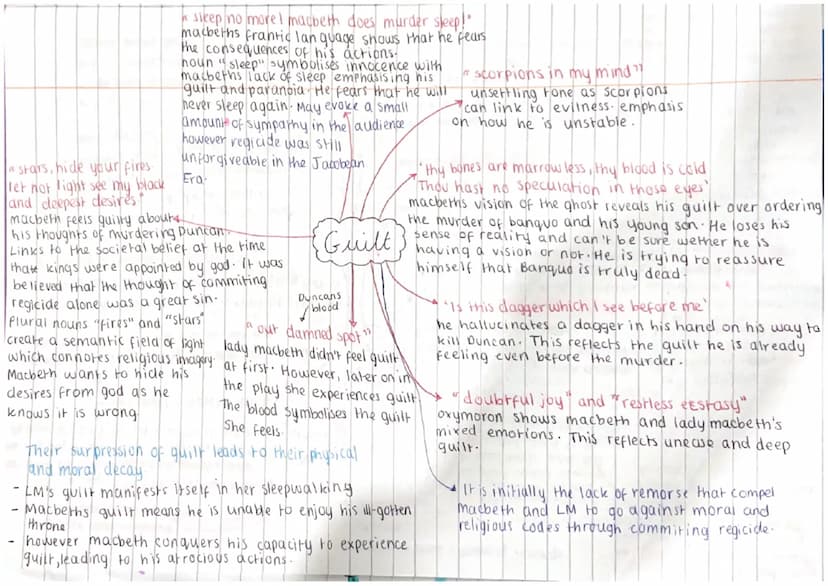 "sleep no more! macbeth does murder sleep!"
macbeths frantic language shows that he fears
the consequences of his actions.
noun "sleep" symbolises innocence with
macbeths lack of sleep emphasising his
guilt and paranoia. He fears that he will
never sleep again. May evoke a small
amount of sympathy in the audience
however regicide was still
unforgiveable in the Jacobean
Era.
"scorpions in my mind"
unsettling tone as scorpions
can link to evilness. emphasis
on how he is unstable.
"stars, hide your fires
let not light see my black
and deepest desires"
macbeth feels guilty about
his thoughts of murdering Duncan.
Links to the societal belief at the time
that kings were appointed by god. It was
believed that the thought of commiting
regicide alone was a great sin.
Plural nouns "fires" and "stars"
create a semantic field of light
which connotes religious imagery.
Macbeth wants to hide his
desires from god as he
knows it is wrong.
'thy bones are marrowless, thy blood is cold
Thou hast no speculation in those eyes'
macbeths vision of the ghost reveals his guilt over ordering
the murder of banquo and his young son. He loses his
sense of reality and can't be sure wether he is
having a vision or not. He is trying to reassure
himself that Banquo is truly dead.
Guilt
'Is this dagger which I see before me'
he hallucinates a dagger in his hand on his way to
kill Duncan. This reflects the guilt he is already
feeling even before the murder.
Duncans
blood
"out damned spot"
lady macbeth didn't feel guilt
at first. However, later on in
the play she experiences guilt
The blood symbolises the guilt
she feels.
"doubtful joy" and "restless ecstasy"
oxymoron shows macbeth and lady macbeth's
mixed emotions. This reflects unease and deep
guilt.
Their surpression of guilt leads to their physical
and moral decay
- LM's guilt manifests itself in her sleepwalking
- Macbeths guilt means he is unable to enjoy his ill-gotten
throne
- however macbeth conquers his capacity to experience
guilt, leading to his atrocious actions.
It is initially the lack of remorse that compel
macbeth and LM to go against moral and
religious codes through commiting regicide.